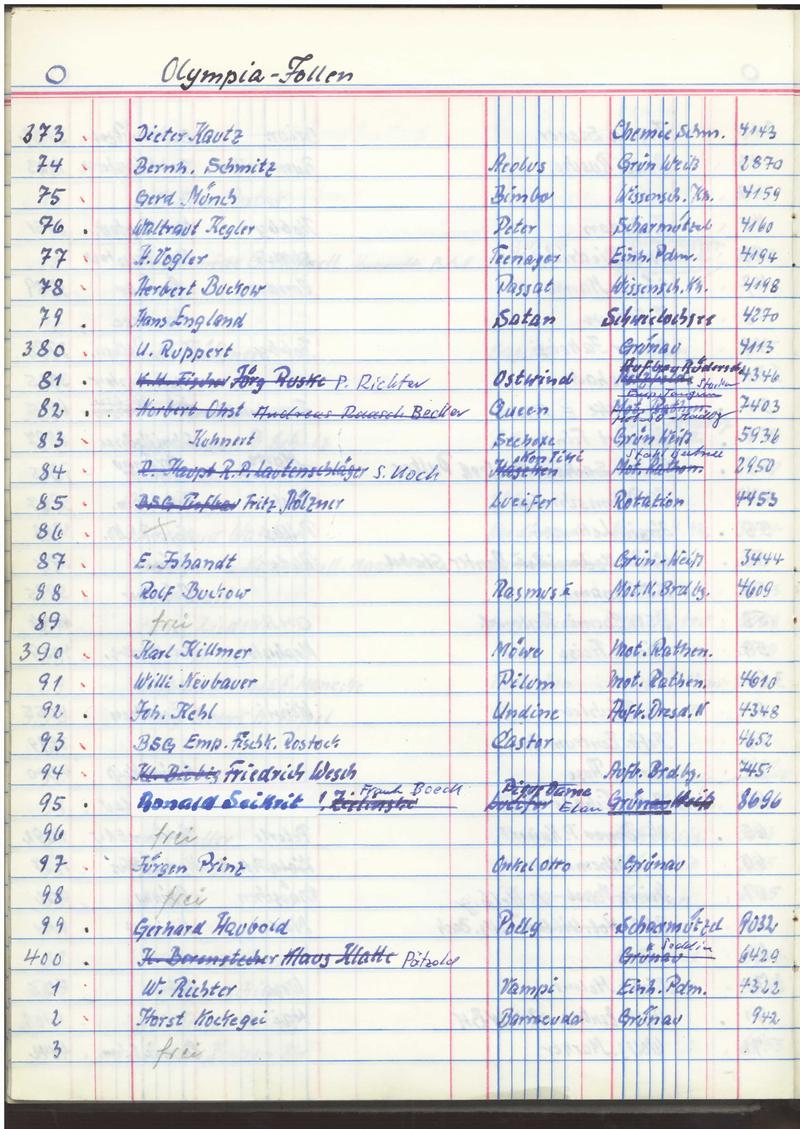 O Olympia-Jollen
373 Dieter Kautz Chemie Schm. 4143
74 Bernh. Schmitz Aeolus Grün Weiß 2870
75 Gerd Münch Bimbo Wissensch. Kh. 4159
76 Waltraut Kegler Peter Scharmützel 4160
77 H. Vogler Teenager Einh. Pdm. 4194
78 Herbert Buckow Passat Wissensch. Kh. 4198
79 Hans England Satan Schwielochsee 4270
380 U. Ruppert Grünau 4113
81 K. H. Fischer Jörg Ruske P. Richter Ostwind 4346
82 Norbert Obst Andreas Raasch Becker Queen 7403
83 Kuhnert Seehexe Grün Weiß 5936
84 R. Haupt R. P. Lautenschläger S. Koch Häschen KonTiki Mot. Rathen 2950
85 BSG Tiefbau Fritz Pölzner Lucifer Rotation 4453
86
87 E. Ishandt Grün-Weiß 3444
88 Rolf Buckow Rasmus II Mot. N. Brdbg. 4609
89 frei
390 Karl Killmer Möwe Mot. Rathen.
91 Willi Neubauer Pilum Mot. Rathen. 4610
92 Joh. Kehl Undine Aufb. Dresd. N 4348
93 BSG Emp. Fischk. Rostock Castor 4652
94 Kl. Biebig Friedrich Wesch Aufb. Brdbg. 745
95 Ronald Seikrit ! J. Zielinski Frank Boeck Lucifer Elan Grünau Weiß 8696
96 frei
97 Jürgen Prinz Onkel Otto Grünau
98 frei
99 Gerhard Haubold Polly Scharmützel 9032
400 Klaus Klatte Pätzold Grünau 6429
1 W. Richter Vampi Einh. Pdm. 4322
2 Horst Kockegei Barracuda Grünau 942
3 frei